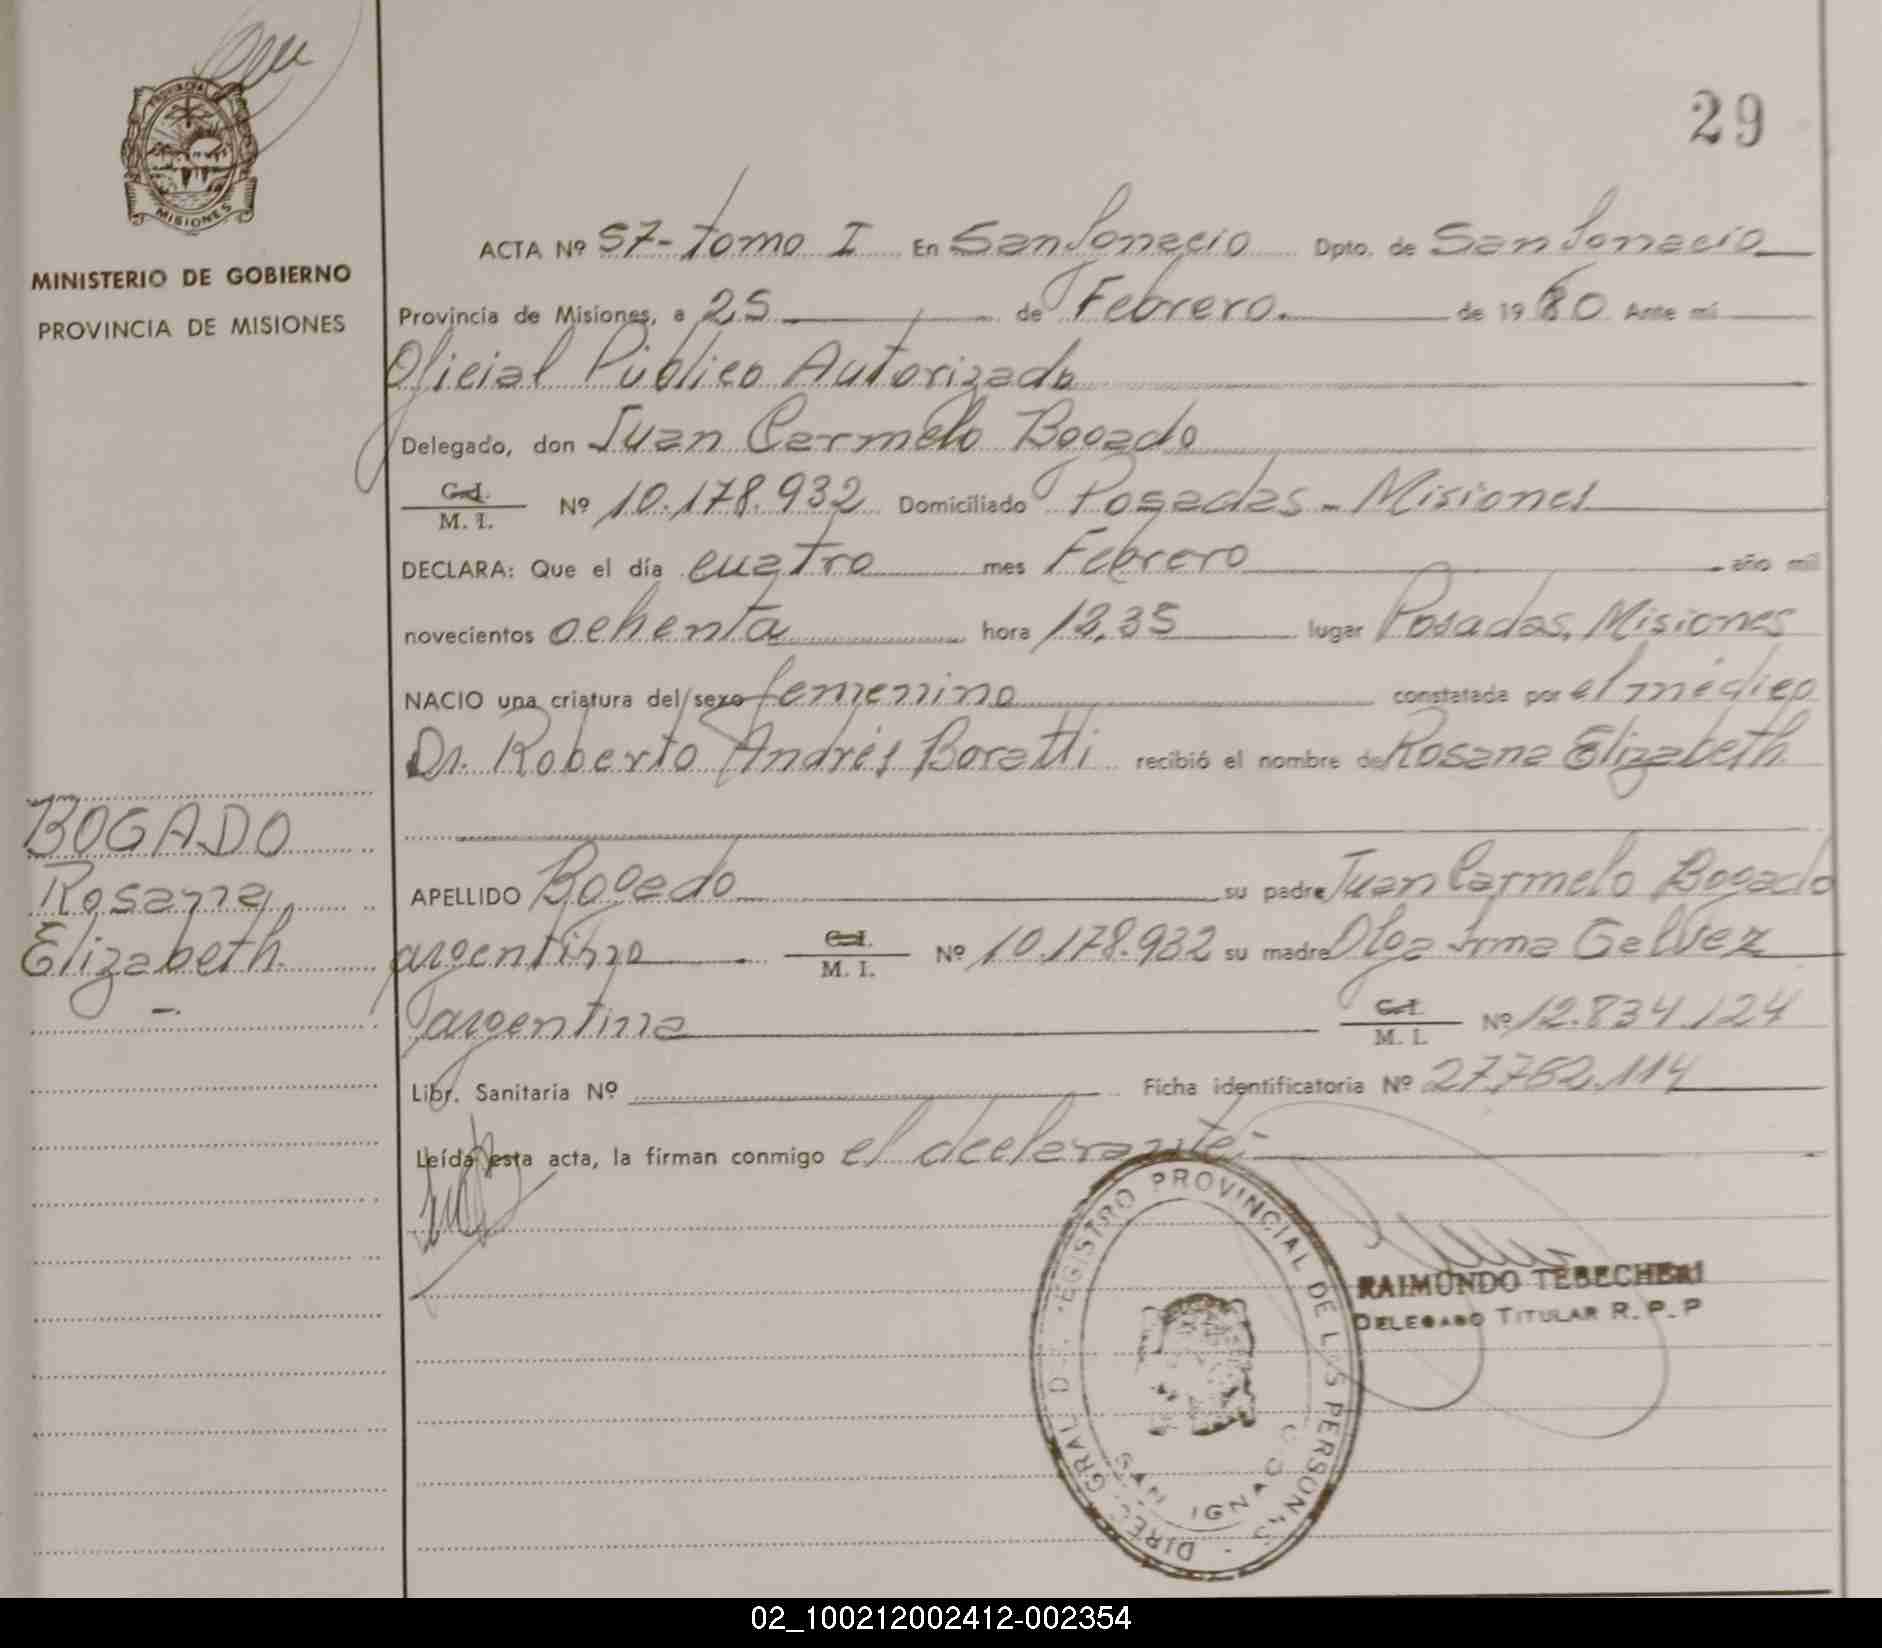 29
MINISTERIO DE GOBIERNO
PROVINCIA DE MISIONES
ACTA Nº 57-tomo I En San Ignacio Dpto. de San Ignacio
Provincia de Misiones, a 25 de Febrero. de 1980 Ante mí
Oficial Público Autorizado
Delegado, don Juan Carmelo Bogado
C.I. / M. I. Nº 10.178.932 Domiciliado Posadas - Misiones
DECLARA: Que el día cuatro mes Febrero año mil
novecientos ochenta hora 12,35 lugar Posadas, Misiones
NACIO una criatura del sexo femenino constatada por el médico
Dr. Roberto Andrés Boratti recibió el nombre de Rosana Elizabeth
BOGADO
Rosana
Elizabeth
-.
APELLIDO Bogado su padre Juan Carmelo Bogado
argentino C.I. / M. I. Nº 10.178.932 su madre Olga Irma Galvez
argentina C.I. / M. I. Nº 12.834.124
Libr. Sanitaria Nº Ficha identificatoria Nº 27.782.114
Leída esta acta, la firman conmigo el declarante:-
RAIMUNDO TEBECHERI
DELEGADO TITULAR R. P. P
DIREC. GRAL DEL REGISTRO PROVINCIAL DE LAS PERSONAS
SAN IGNACIO
02_100212002412-002354